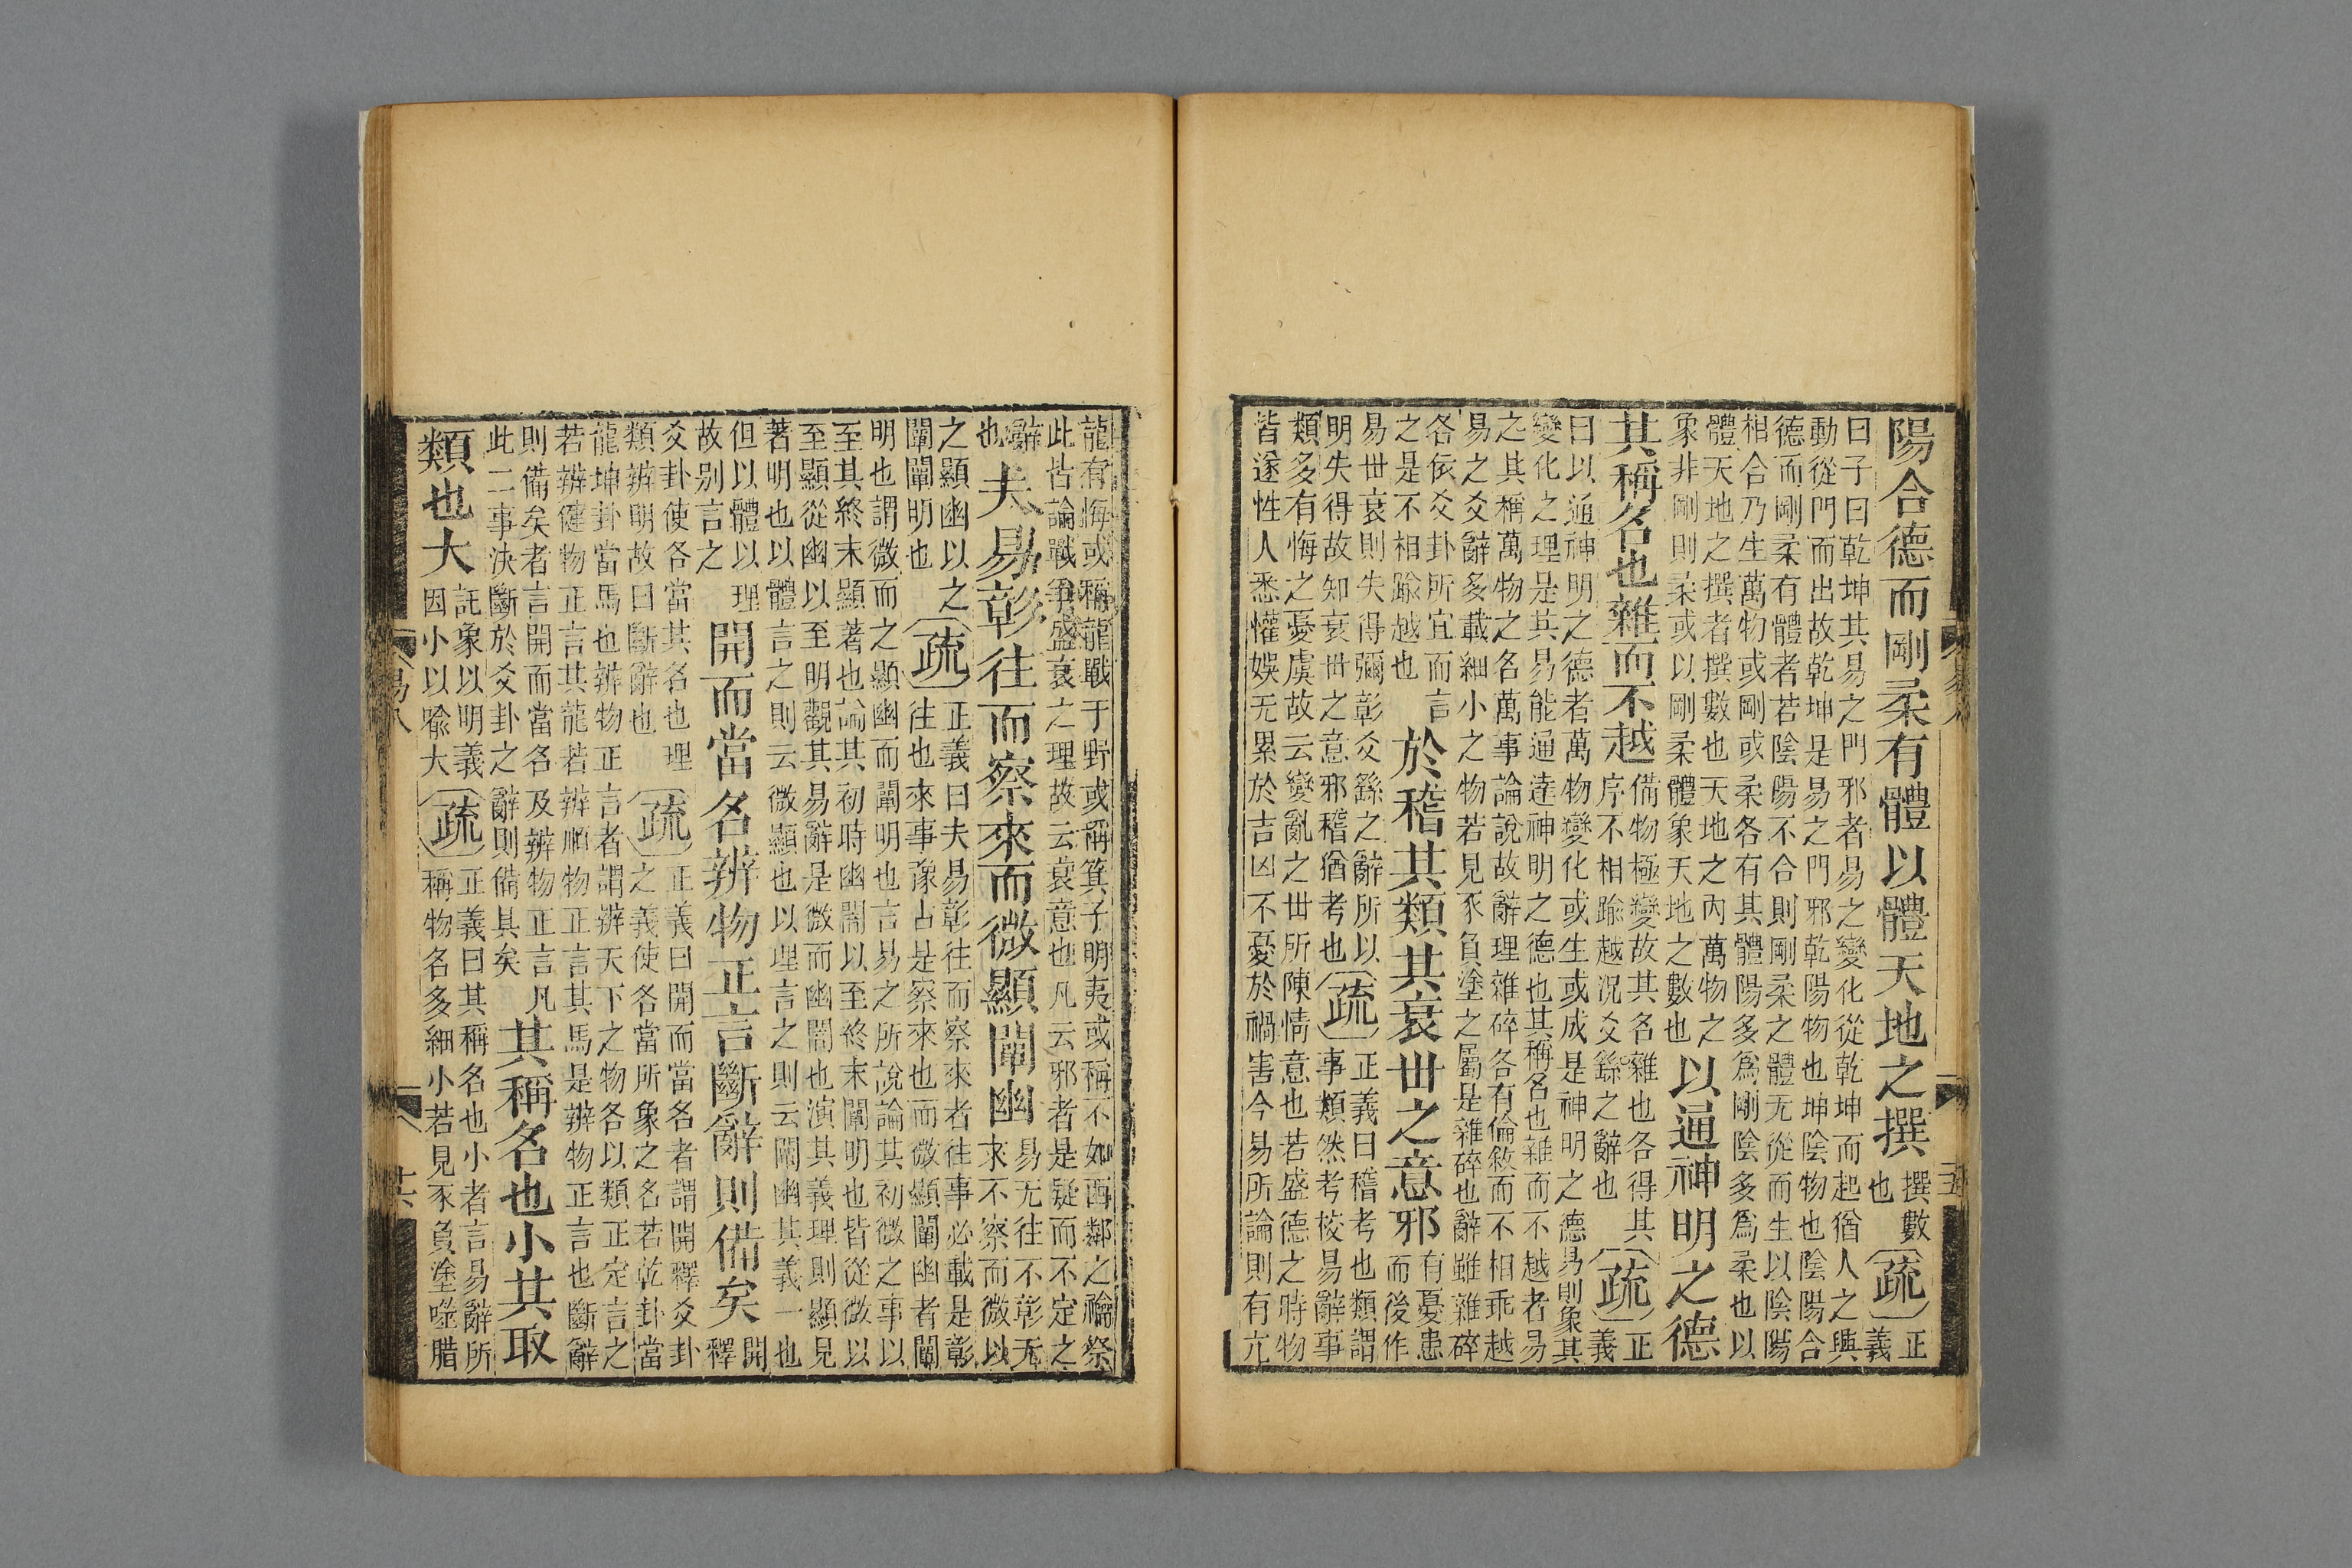 陽合德而剛柔有體以體天地之撰撰數也疏正義
曰子曰乾坤其易之門邪者易之變化從乾坤而起猶人之興
動從門而出故乾坤是易之門邪乾陽物也坤陰物也陰陽合
德而剛柔有體者若陰陽不合則剛柔之體无從而生以陰陽
相合乃生萬物或剛或柔各有其體陽多爲剛陰多爲柔也以
體天地之撰者撰數也天地之內萬物之
象非剛則柔或以剛柔體象天地之數也以通神明之德
其稱名也雜而不越備物極變故其名雜也各得其
序不相踰越況爻繇之辭也疏正義
曰以通神明之德者萬物變化或生或成是神明之德易則象其
變化之理是其易能通達神明之德也其稱名也雜而不越者易
之其稱萬物之名萬事論說故辭理雜碎各有倫敘而不相乖越
易之爻辭多載細小之物若見豕負塗之屬是雜碎也辭雖雜碎
各依爻卦所宜而言
之是不相踰越也於稽其類其衰世之意邪有憂患而後作
易世衰則失得彌彰爻繇之辭所以
明失得故知衰世之意邪稽猶考也疏正義曰稽考也類謂
事類然考校易辭事
類多有悔之憂虞故云變亂之世所陳情意也若盛德之時物
皆遂性人悉懽娛无累於吉凶不憂於禍害今易所論則有亢
龍有悔或稱龍戰于野或稱箕子明夷或稱不如西鄰之禴祭
此皆論戰爭盛衰之理故云衰意也凡云邪者是疑而不定之
辭也夫易彰往而察來而微顯闡幽易无往不彰无
來不察而微以
之顯幽以之
闡闡明也疏正義曰夫易彰往而察來者往事必載是彰
往也來事豫占是察來也而微顯闡幽者闡
明也謂微而之顯幽而闡明也言易之所說論其初微之事以
至其終末顯著也論其初時幽闇以至終末闡明也皆從微以
至顯從幽以至明觀其易辭是微而幽闇也演其義理則顯見
著明也以體言之則云微顯也以理言之則云闡幽其義一也
但以體以理
故別言之開而當名辨物正言斷辭則備矣開釋
爻卦使各當其名也理
類辨明故曰斷辭也疏正義曰開而當名者謂開釋爻卦
之義使各當所象之名若乾卦當
龍坤卦當馬也辨物正言者謂辨天下之物各以類正定言之
若辨健物正言其龍若辨順物正言其馬是辨物正言也斷辭
則備矣者言開而當名及辨物正言凡
此二事決斷於爻卦之辭則備具矣其稱名也小其取
類也大託象以明義
因小以喻大疏正義曰其稱名也小者言易辭所
稱物名多細小若見豕負塗噬腊
易八